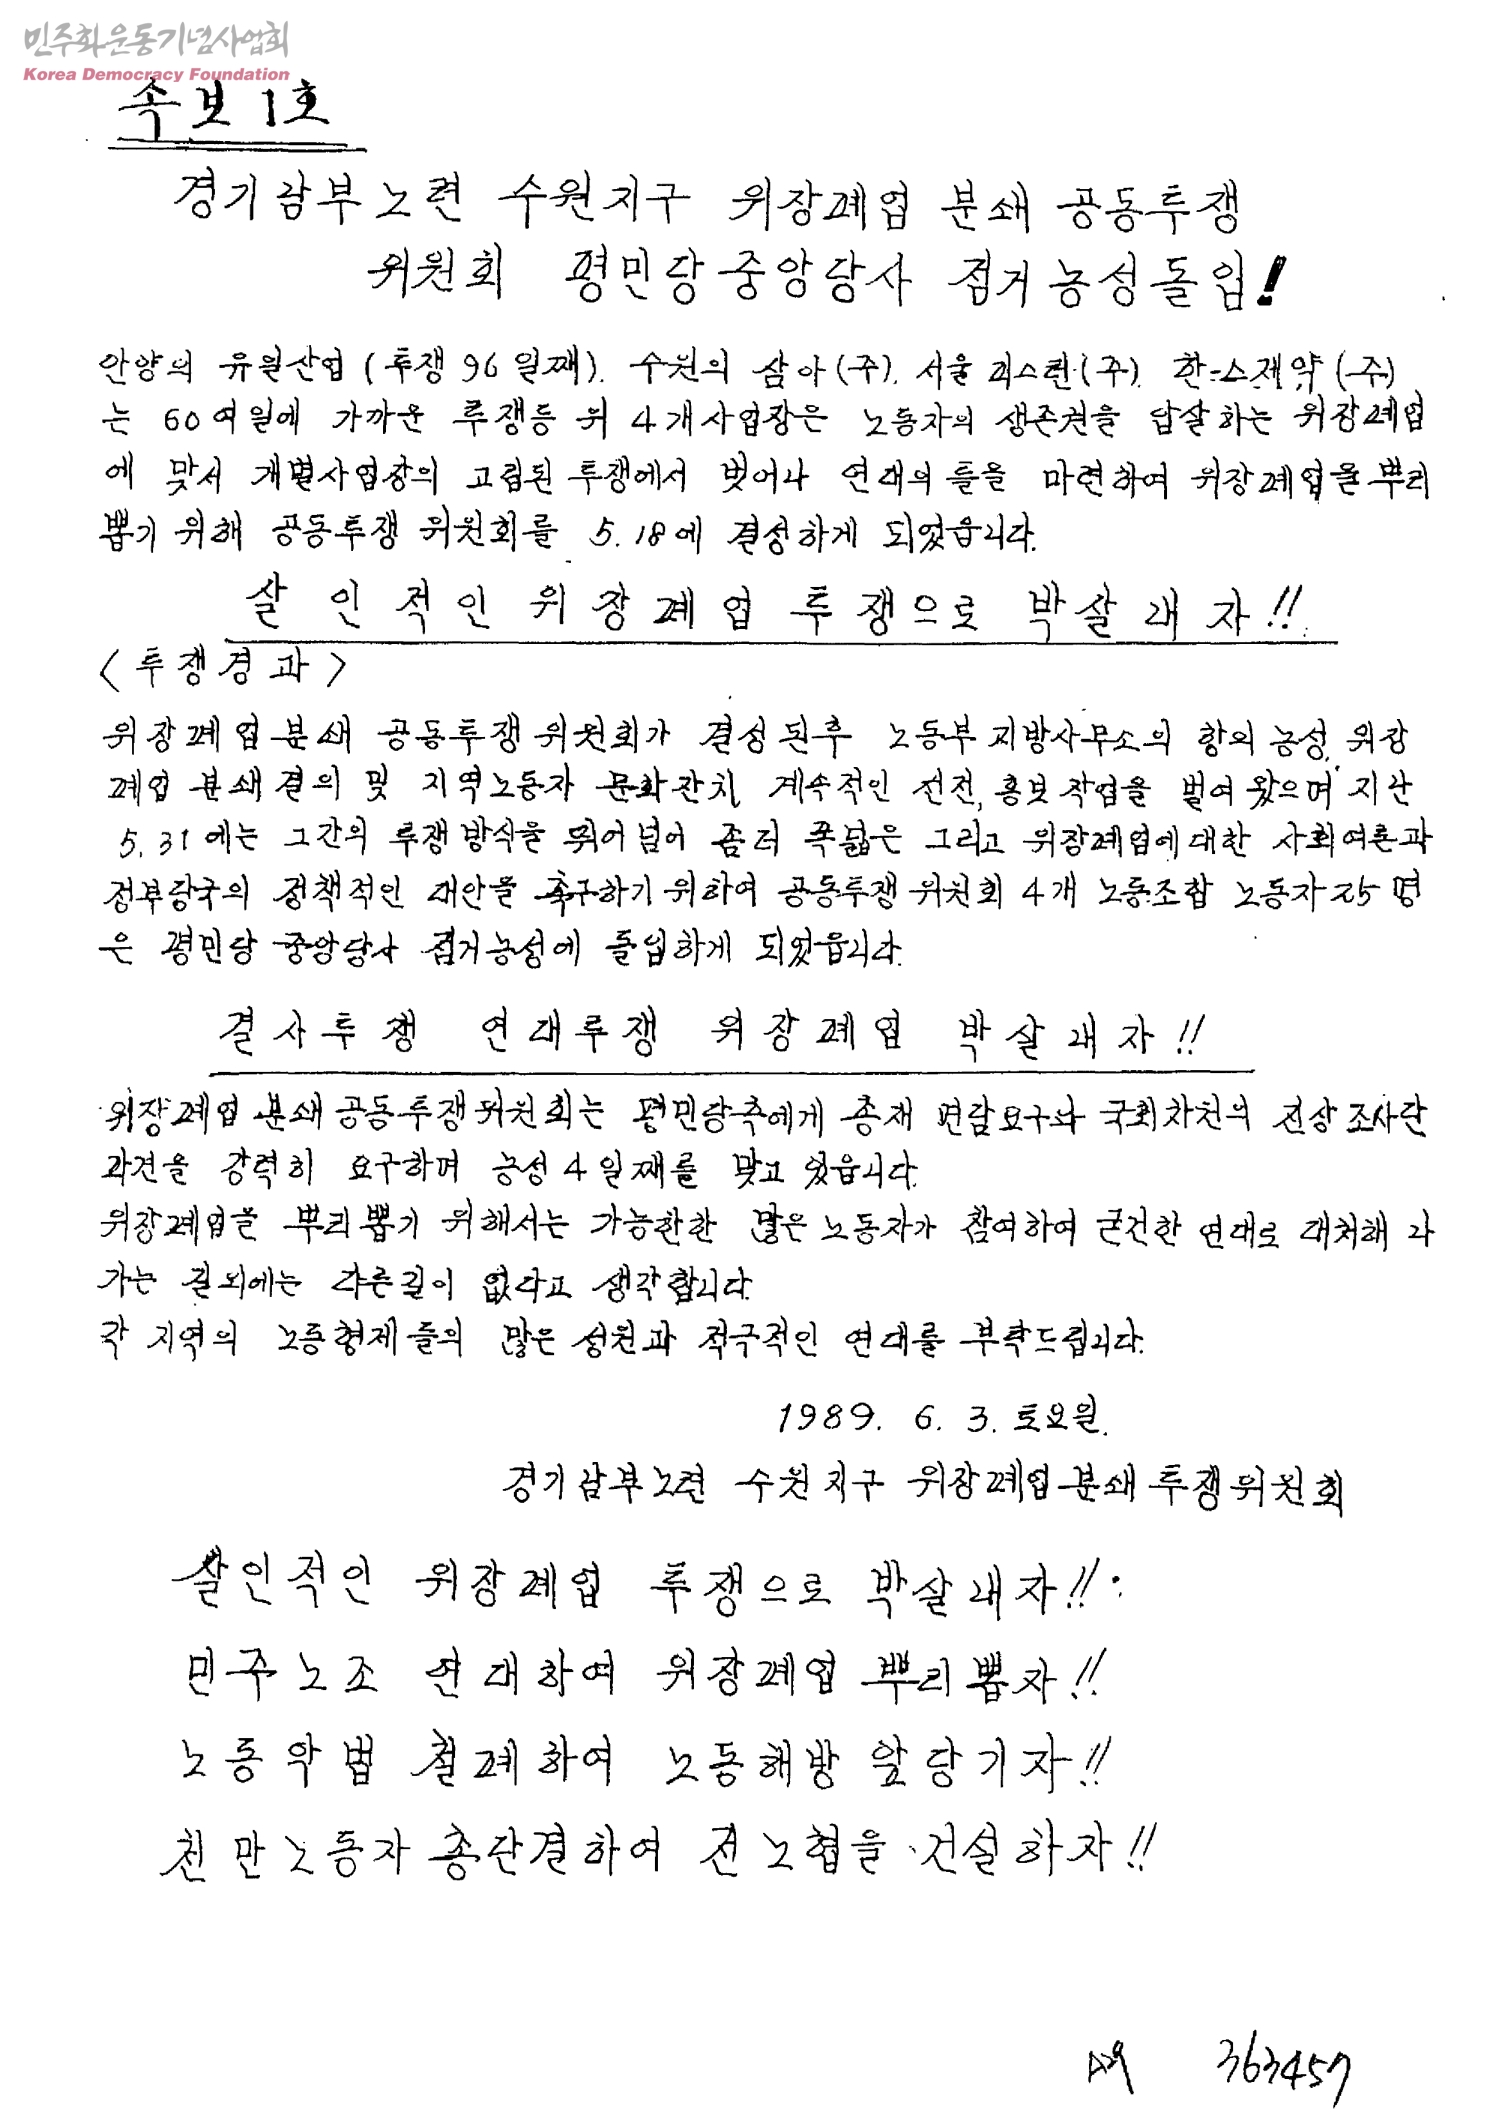 민주화운동기념사업회
Korea Democracy Foundation
속보 1호
경기남부노련 수원지구 위장폐업 분쇄 공동투쟁
위원회 평민당중앙당사 점거농성돌입!
안양의 유월산업 (투쟁 96일째). 수원의 삼아(주). 서울 피스톤(주). 한스제약(주)
는 60여일에 가까운 투쟁등 위 4개사업장은 노동자의 생존권을 압살하는 위장폐업
에 맞서 개별사업장의 고립된 투쟁에서 벗어나 연대의 틀을 마련하여 위장폐업을 뿌리
뽑기 위해 공동투쟁 위원회를 5.18에 결성하게 되었읍니다.
살인적인 위장폐업 투쟁으로 박살내자!!
<투쟁경과>
위장폐업분쇄 공동투쟁위원회가 결성된후 노동부 지방사무소의 항의농성, 위장
폐업 분쇄결의 및 지역노동자 문화잔치, 계속적인 선전, 홍보작업을 벌여왔으며 지난
5.31에는 그간의 투쟁방식을 뛰어넘어 좀더 폭넓은 그리고 위장폐업에대한 사회여론과
정부당국의 정책적인 대안을 촉구하기위하여 공동투쟁위원회 4개 노동조합 노동자 25명
은 평민당 중앙당사 점거농성에 돌입하게 되었읍니다.
결사투쟁 연대투쟁 위장폐업 박살내자!!
위장폐업 분쇄공동투쟁위원회는 평민당측에게 총재 면담요구와 국회차원의 진상조사단
파견을 강력히 요구하며 농성 4일째를 맞고 있읍니다.
위장폐업을 뿌리뽑기 위해서는 가능한한 많은노동자가 참여하여 굳건한 연대로 대처해 나
가는 길외에는 다른길이 없다고 생각합니다.
각 지역의 노동형제들의 많은 성원과 적극적인 연대를 부탁드립니다.
1989. 6. 3. 토요일.
경기남부노련 수원지구 위장폐업분쇄투쟁위원회
살인적인 위장폐업 투쟁으로 박살내자!!
민주노조 연대하여 위장폐업 뿌리뽑자!!
노동악법 철폐하여 노동해방 앞당기자!!
천만노동자 총단결하여 전노협을 건설하자!!
363457